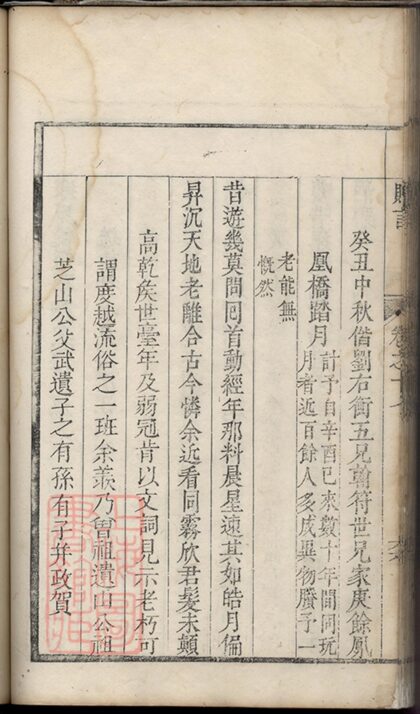 言
卷之十
癸丑中秋偕劉右衡五兄翰符世兄家庚餘鳳
凰橋踏月
計予自辛酉已來數十年間同玩
月者近百餘人多成異物賸予一
老能無
慨然
昔遊幾莫問回首動經年那料晨星遠其如皓月偏
昇沉天地老離合古今憐余近看同霧欣君髮未顛
高乾矦世臺年及弱冠肯以文詞見示老朽可
謂度越流俗之一班余羨乃曾祖遺山公祖
芝山公父武遺子之有孫有子并政賀